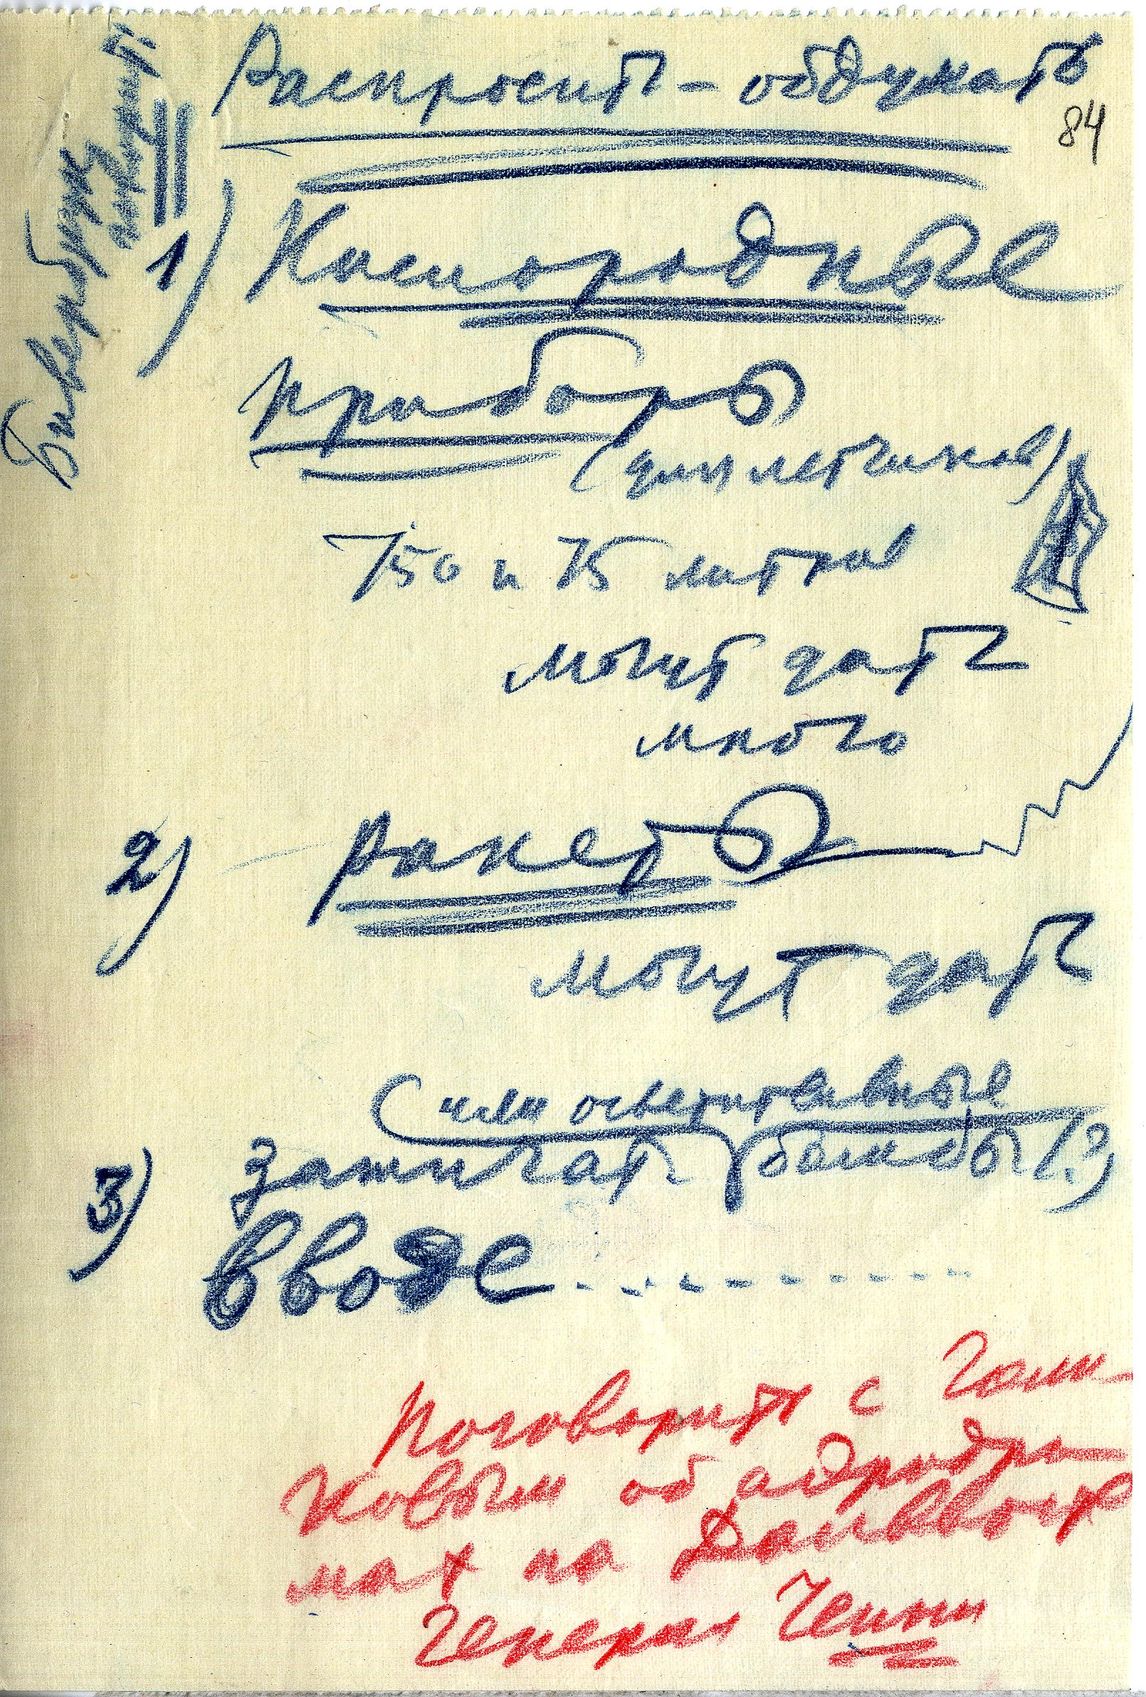 Бивербрук
говорит:
Распросить – обдумать
84
1) Кислородные
приборы
(для летчиков)
750 и 75 литров
могут дать
много
2) ракеты
могут дать
(или осветительные
3) зажигат. бомбы (?)
ввозе
Поговорить с Голи-
ковым об аэродро-
мах на Дал Востоке
Генерал